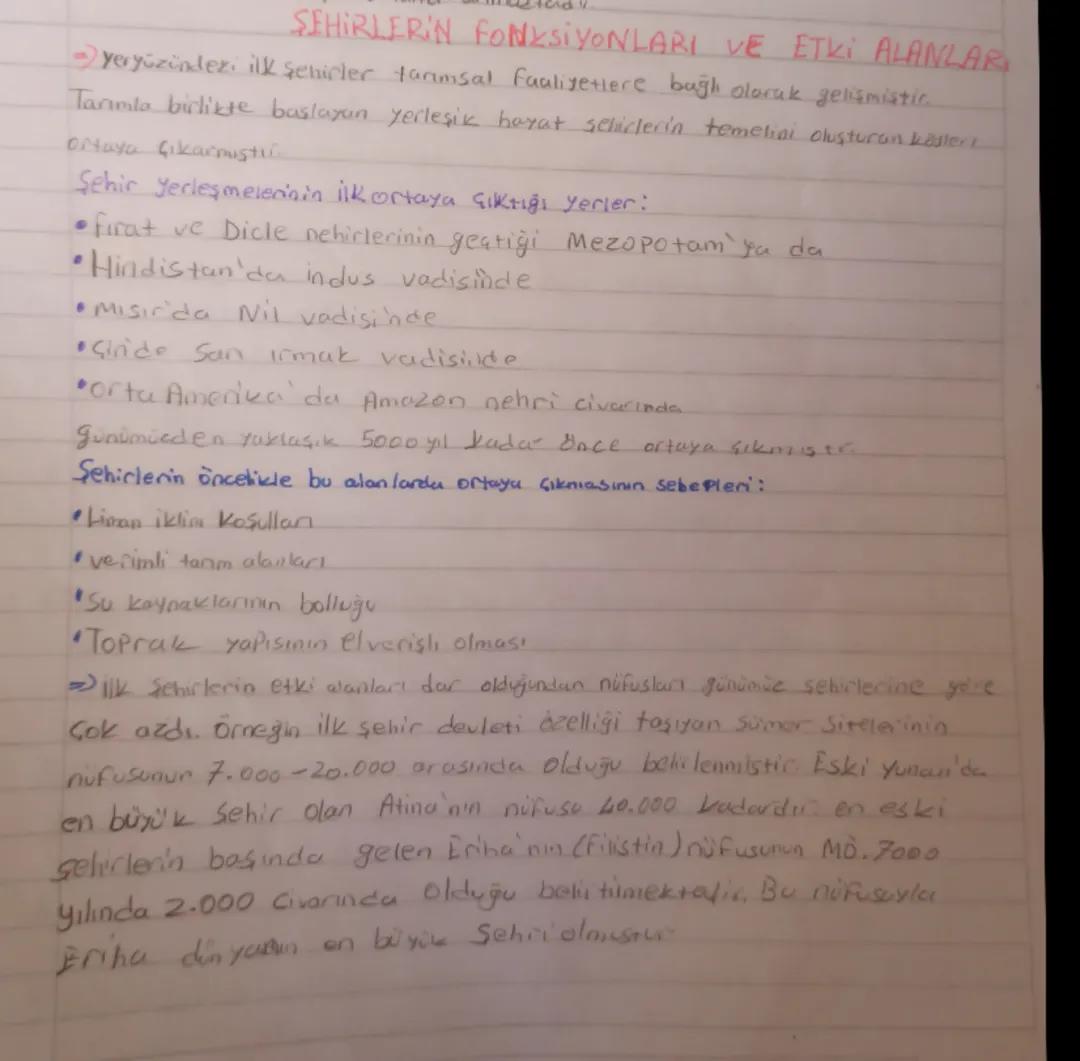 ŞEHİRLERİN FONKSİYONLARI VE ETKİ ALANLARI
⇒ yeryüzündeki ilk şehirler tarımsal faaliyetlere bağlı olarak gelişmiştir.
Tarımla birlikte başlayan yerleşik hayat şehirlerin temelini oluşturan köyleri
ortaya çıkarmıştır.
Şehir yerleşmelerinin ilk ortaya çıktığı yerler:
• fırat ve Dicle nehirlerinin geçtiği Mezopotam'ya da
• Hindistan'da indus vadisinde
• mısır'da Nil vadisi'nde
• Çin'de Sarı ırmak vadisinde
• orta Amerika'da Amazon nehri civarında
günümüzden yaklaşık 5000 yıl kadar önce ortaya çıkmıştır.
Şehirlerin öncelikle bu alanlarda ortaya çıkmasının sebepleri:
• Lıman iklim koşulları
• verimli tarım alanları
• Su kaynaklarının bolluğu
• Toprak yapısının elverişli olması
⇒ ilk şehirlerin etki alanları dar olduğundan nüfusları günümüz şehirlerine göre
çok azdı. Örneğin ilk şehir devleti özelliği taşıyan sümer Sitelerinin
nüfusunun 7.000-20.000 arasında olduğu belirlenmiştir. Eski Yunan'da
en büyük şehir olan Atina'nın nüfusu 40.000 kadardır. en eski
şehirlerin başında gelen Eriha'nın (Filistin) nüfusunun MÖ. 7000
yılında 2.000 civarında olduğu belirtilmektedir. Bu nüfusuyla
Eriha dünyanın en büyük şehri olmuştur